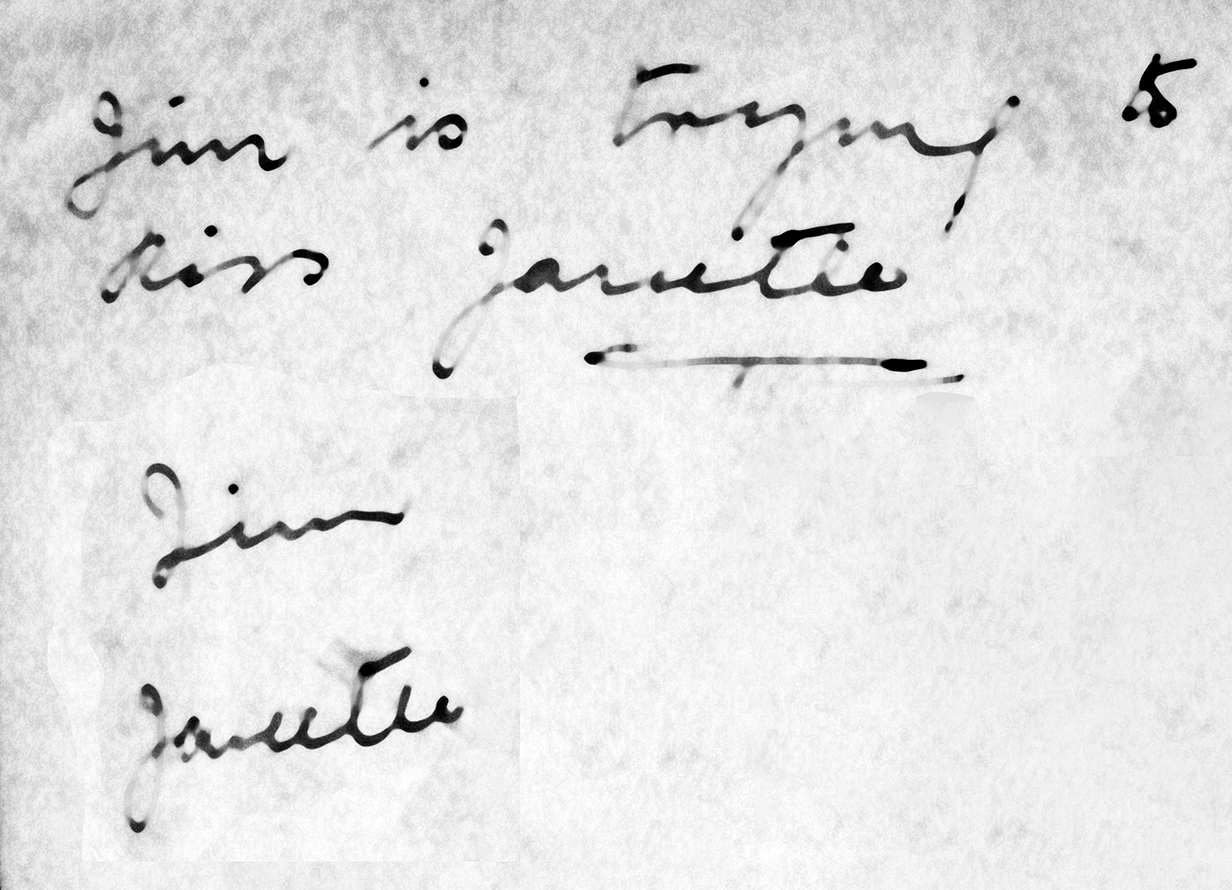 Jim is trying to
kiss Janette
Jim
Janette